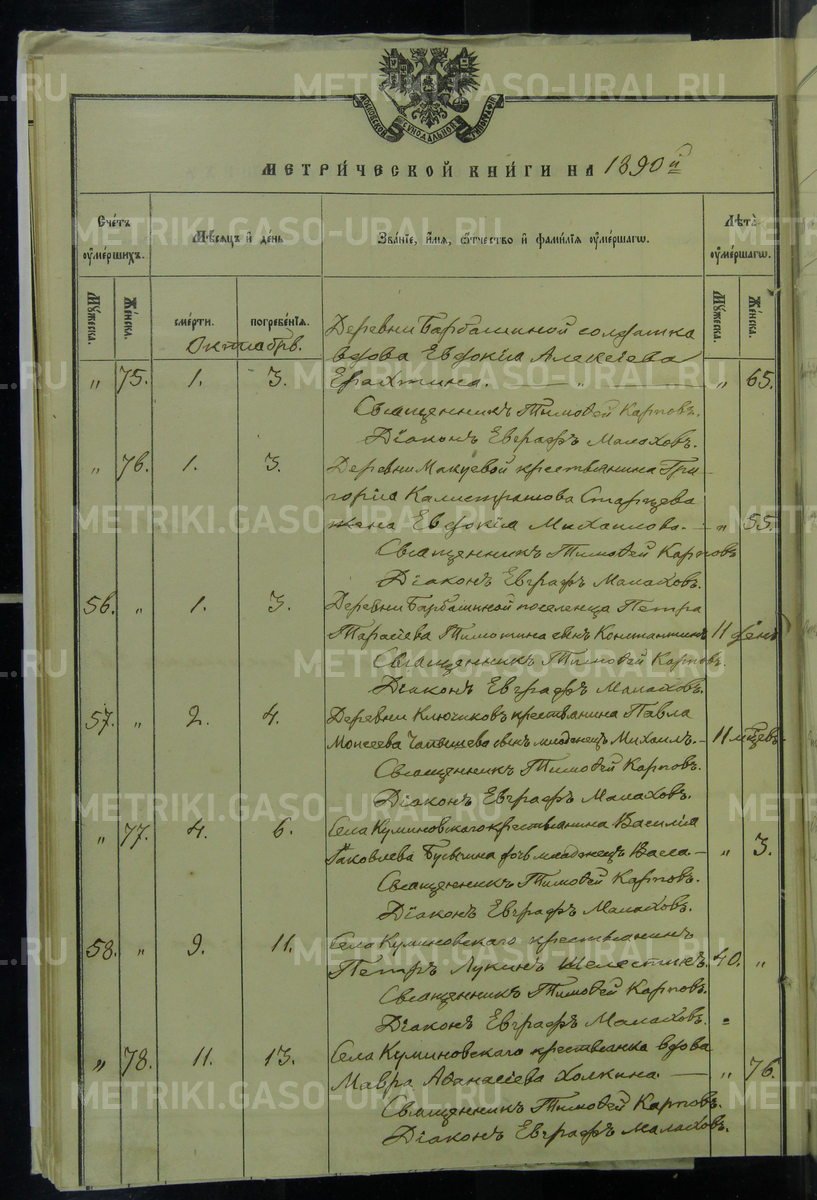 МОСКОВСКОЙ СѴНОДАЛЬНОЙ ТИПОГРАФІИ
МЕТРИ́ЧЕСКОЙ КНИ́ГИ НА 1890й
Сче́тъ ᲂу҆ме́ршихъ.
Мѣ́сяцъ и҆ де́нь
Зва́нїе, и҆́мя, ѻ҆́тчество и҆ фами́лїя ᲂу҆ме́ршагѡ.
Лѣ́та ᲂу҆ме́ршагѡ.
Мꙋ́жеска.
Же́нска.
сме́рти.
погребе́нїя.
Мꙋ́жеска.
Же́нска.
Октябрь.
Деревни Барбашиной солдатка
вдова Евдокія Алексіева
„ 75. 1. 3. Ерахтина. — „ — „ 65.
Священникъ Тимоѳей Карповъ.
Діаконъ Евграфъ Малаховъ.
„ 76. 1. 3. Деревни Макуевой крестьянина Гри-
горія Калистратова Старцева
жена Евдокія Михаилова. — „ 55.
Священникъ Тимоѳей Карповъ
Діаконъ Евграфъ Малаховъ.
56. „ 1. 3. Деревни Барбашиной поселенца Петра
Тарасіева Тимотина сынъ Константинъ 11 день
Священникъ Тимоѳей Карповъ.
Діаконъ Евграфъ Малаховъ.
57. „ 2. 4. Деревни Ключиковъ крестьянина Павла
Моисеева сынъ младенецъ Михаилъ. — 11 мѣцевъ.
Священникъ Тимоѳей Карповъ.
Діаконъ Евграфъ Малаховъ.
„ 77. 4. 6. Села Куминовскаго крестьянина Василія
Іаковлева дочь младенецъ Васса — „ 3.
Священникъ Тимоѳей Карповъ.
Діаконъ Евграфъ Малаховъ.
58. „ 9. 11. Села Куминовскаго крестьянинъ
Петръ Лукинъ Шелестинъ. 40. „
Священникъ Тимоѳей Карповъ.
Діаконъ Евграфъ Малаховъ.
„ 78. 11. 13. Села Куминовскаго крестьянка вдова
Мавра Аѳанасіева Холкина. — „ 76.
Священникъ Тимоѳей Карповъ.
Діаконъ Евграфъ Малаховъ.
METRIKI.GASO-URAL.RU